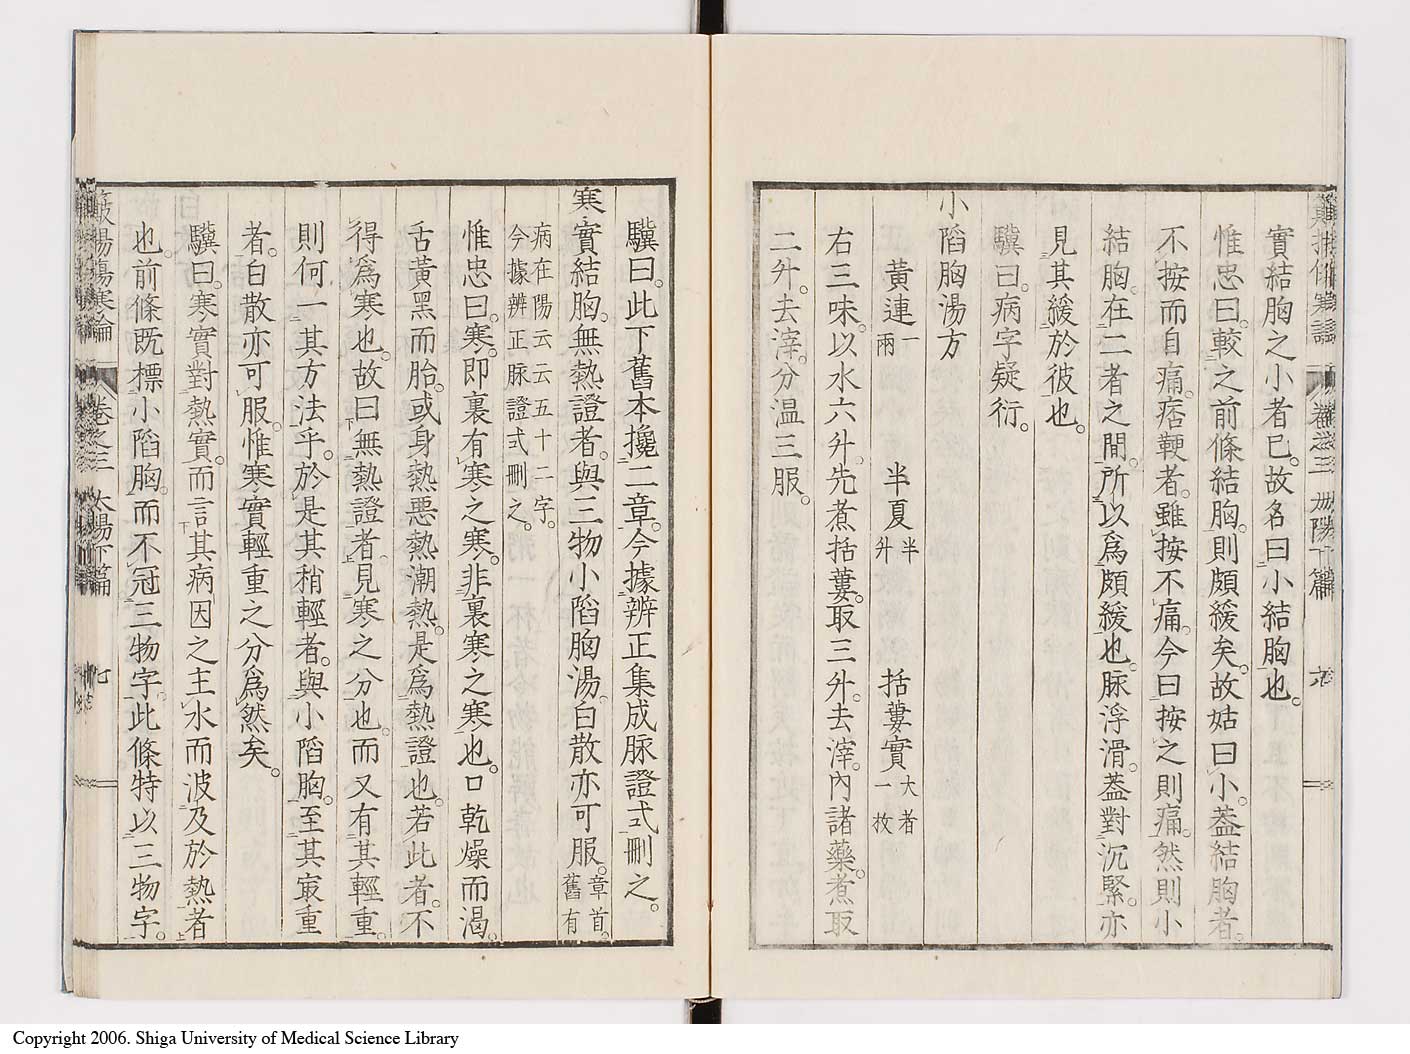 實結胸之小者已。故名曰小結胸也。
惟忠曰。較之前條結胸。則頗緩矣。故姑曰小。葢結胸者。
不按而自痛。痞鞕者。雖按不痛。今曰按之則痛。然則小
結胸。在二者之間。所以爲頗緩也。脉浮滑。葢對沉緊。亦
見其緩於彼也。
驥曰。病字疑衍。
小陷胸湯方
黃連一兩 半夏半升 括蔞實大者一枚
右三味。以水六升。先煮括蔞。取三升。去滓。內諸藥。煮取
二升。去滓。分温三服。
驥曰。此下舊本攙二章。今據辨正集成脉證式刪之。
寒實結胸。無熱證者。與三物小陷胸湯。白散亦可服。章首。舊有
病在陽云云五十二字。
今據辨正脉證式刪之。
惟忠曰。寒。即裏有寒之寒。非裏寒之寒也。口乾燥而渴。
舌黃黑而胎。或身熱惡熱潮熱。是爲熱證也。若此者。不
得爲寒也。故曰無熱證者。見寒之分也。而又有其輕重。
則何一其方法乎。於是其稍輕者。與小陷胸。至其㝡重
者。白散亦可服。惟寒實輕重之分爲然矣。
驥曰。寒實對熱實。而言其病因之主水而波及於熱者
也。前條既標小陷胸。而不冠三物字。此條特以三物字。
傷寒論 卷之三 太陽下篇 七
Copyright 2006. Shiga University of Medical Science Library